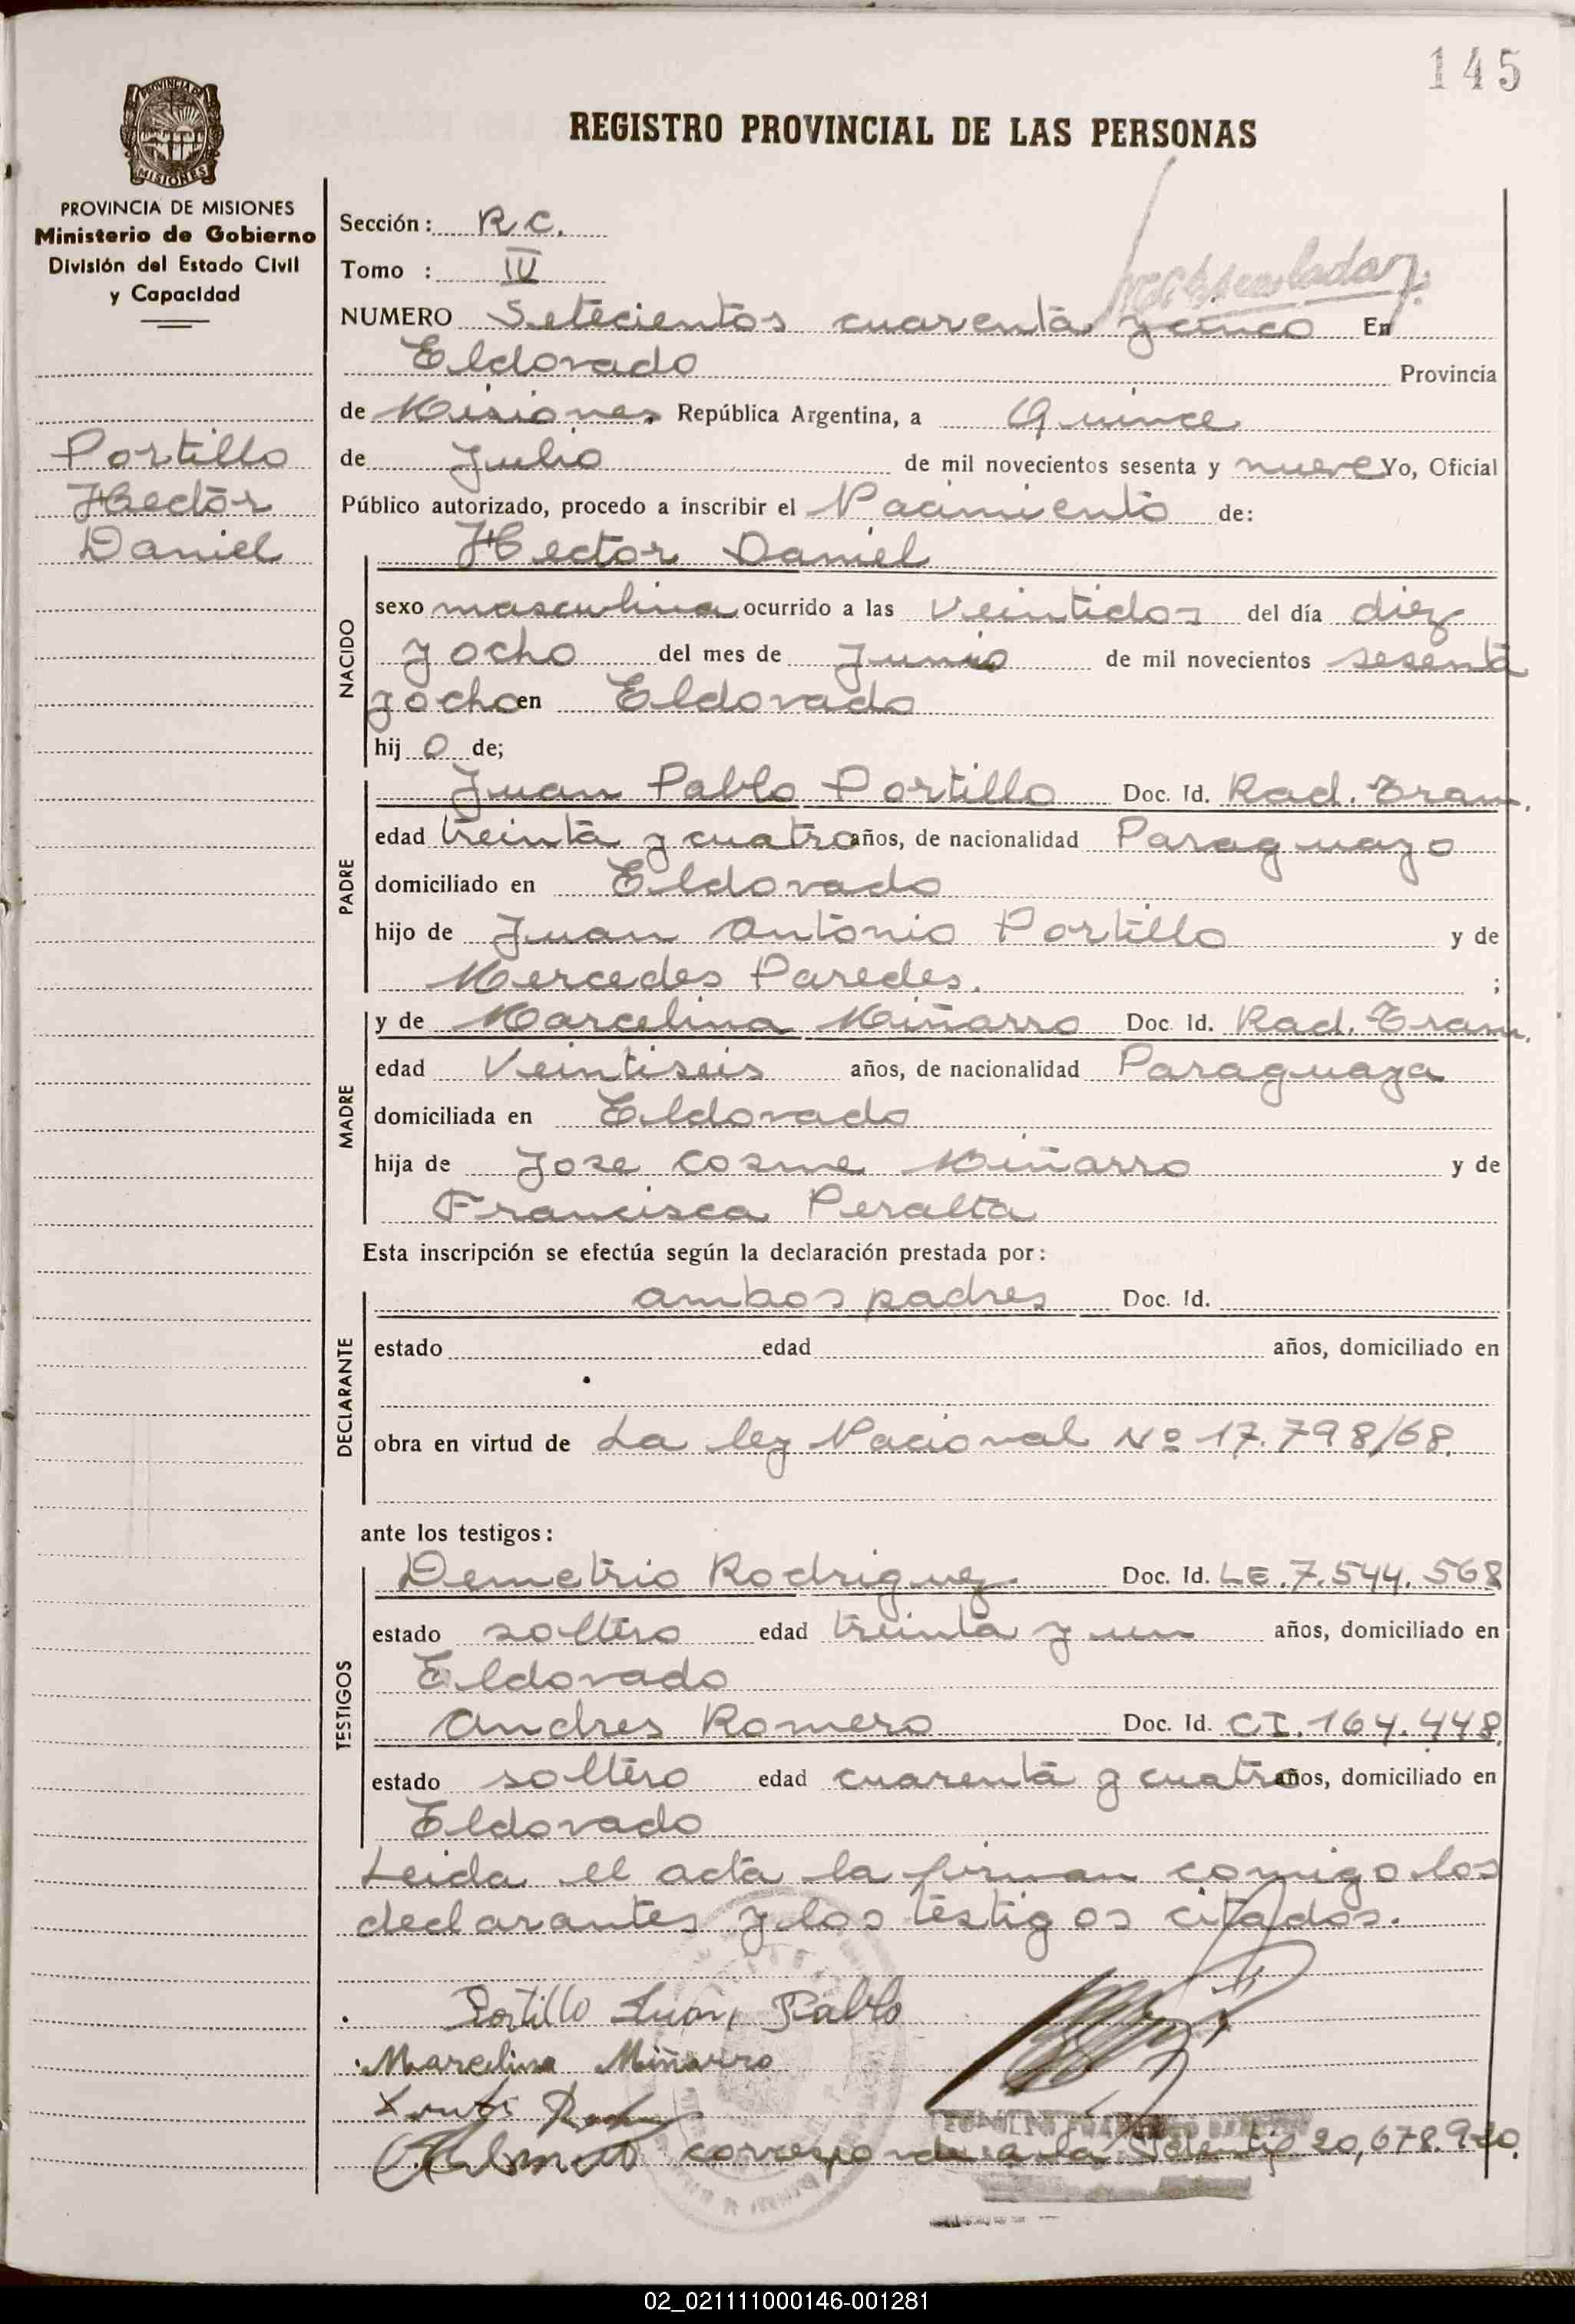 145
REGISTRO PROVINCIAL DE LAS PERSONAS
PROVINCIA DE
MISIONES
PROVINCIA DE MISIONES
Ministerio de Gobierno
División del Estado Civil
y Capacidad
Portillo
Hector
Daniel
Sección: R.C.
Tomo : IV
NUMERO Setecientos cuarenta y cinco En
Eldorado Provincia
de Misiones República Argentina, a Quince
de Julio de mil novecientos sesenta y nueve Yo, Oficial
Público autorizado, procedo a inscribir el Nacimiento de:
NACIDO
Hector Daniel
sexo masculino ocurrido a las veintidos del día diez
y ocho del mes de Junio de mil novecientos sesenta
y ocho en Eldorado
hij o de;
PADRE
Juan Pablo Portillo Doc. Id. Rad. Tram.
edad treinta y cuatro años, de nacionalidad Paraguayo
domiciliado en Eldorado
hijo de Juan Antonio Portillo y de
Mercedes Paredes. ;
MADRE
y de Marcelina Miñarro Doc. Id. Rad. Tram.
edad Veintiseis años, de nacionalidad Paraguaya
domiciliada en Eldorado
hija de Jose Cosme Miñarro y de
Francisca Peralta
Esta inscripción se efectúa según la declaración prestada por:
DECLARANTE
ambos padres Doc. Id.
estado edad años, domiciliado en
obra en virtud de La ley Nacional Nº 17.798/68.
ante los testigos:
TESTIGOS
Demetrio Rodriguez. Doc. Id. LE.7.544.568
estado soltero edad treinta y un años, domiciliado en
Eldorado
Andres Romero Doc. Id. CI.164.448.
estado soltero edad cuarenta y cuatro años, domiciliado en
Eldorado
Leida el acta la firman comigo los
declarantes y los testigos citados.
Portillo Juan Pablo
Marcelina Miñarro
corresponde a la 20,678.920.
02_021111000146-001281